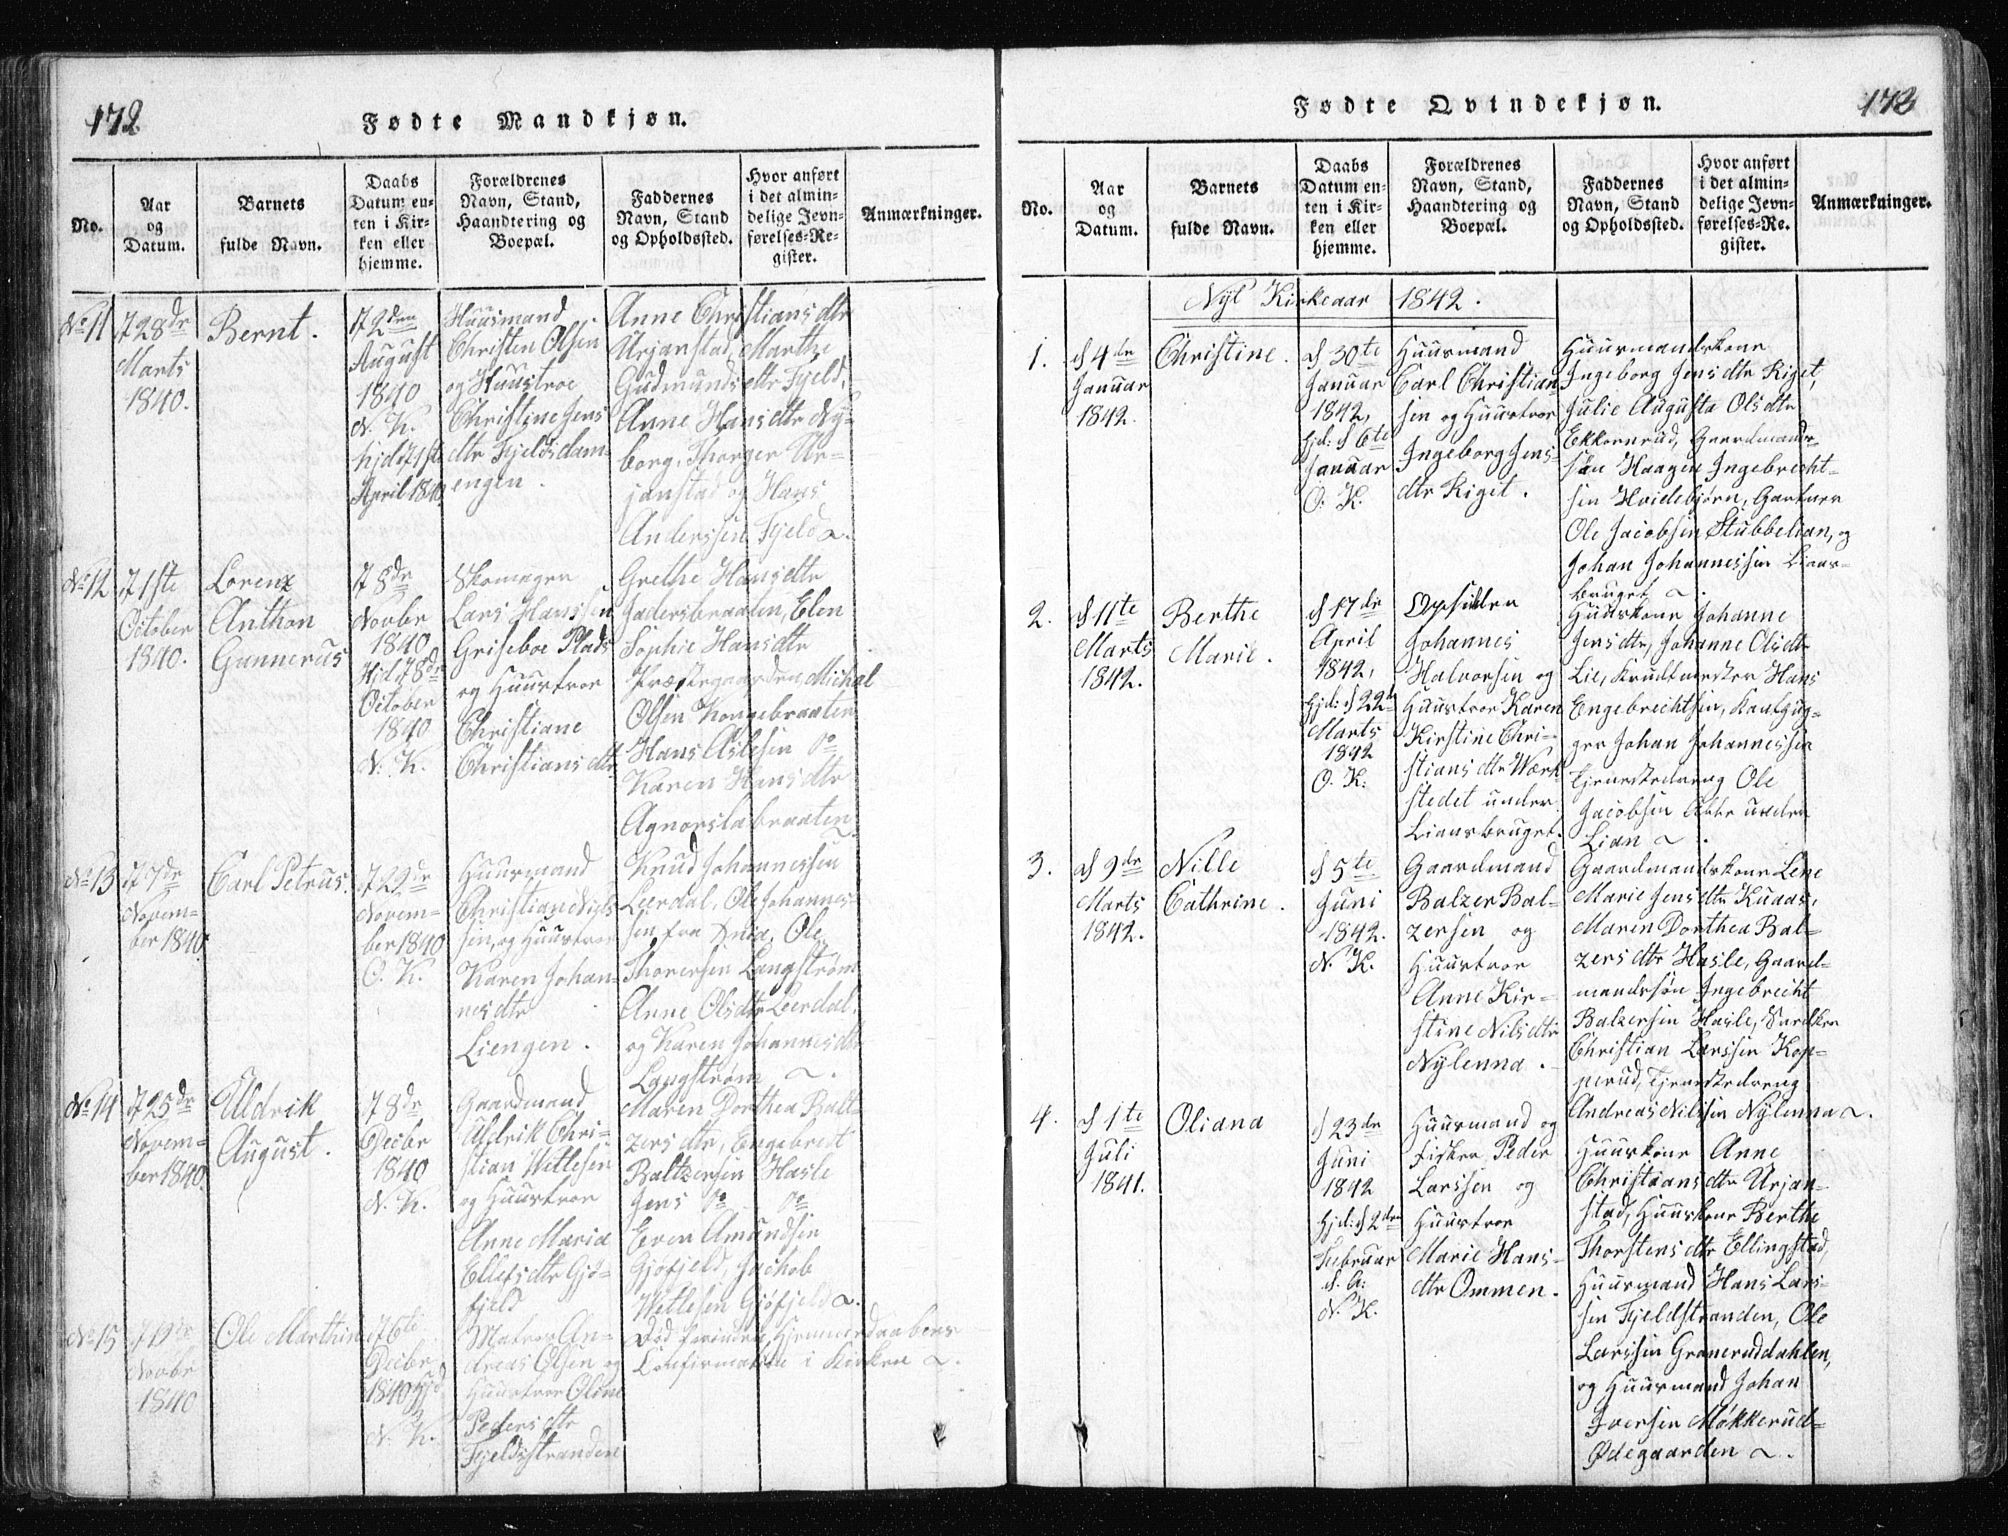 172.
Fødte Mandkjøn.
No.
Aar
og
Datum.
Barnets
fulde Navn.
Daabs
Datum en-
ten i Kir-
ken eller
hjemme.
Forældrenes
Navn, Stand,
Haandtering og
Boepæl.
Faddernes
Navn, Stand
og Opholdssted.
Hvor anført
i det almin-
delige Jevn-
førelses-Re-
gister.
Anmærkninger.
No 11
d 28de
Marts
1840.
Bernt.
d 2den
August
1840
N. K.
hjd d 1ste
April 1840
Huusmand
Christen Olsen
og Huustroe
Christine Jens
dtr Fjeldsdam-
engen.
Anne Christiansdtr
Urjanstad, Marthe
Gudmundsdtr Fjeld,
Anne Hansdtr Ny-
borg, Thorger Ur-
janstad og Hans
Anderssen Fjeld
No 12
d 1ste
October
1840.
Lorenz
Anthon
Gunnerus
d 8de
Novbr
1840
Hjd d 8de
October
1840
N. K.
Skomager
Lars Hanssen
Griseboe Plads
og Huustroe
Christiane
Christiansdtr
Grethe Hansdtr
Jadersbraaten, Elen
Sophie Hansdtr
Præstegaarden, Michal
Olsen Kongebraaten
Hans Aslesen do
Karen Hansdtr
Agnorslabraaten
No 13
d 7de
Novem-
ber 1840.
Carl Petrus.
d 22de
Novem-
ber 1840
O. K.
Huusmand
Christian Niels
sen og Huustroe
Karen Johan-
nesdtr
Liengen.
Knud Johannessen
Leerdal, Ole Johannes-
sen fra Ole
Thoresen Langstrøm
Anne Olsdtr Leerdal,
og Karen Johannesdtr
Langstrøm
No 14
d 25de
Novem-
ber 1840.
Uldrik
August.
d 8de
Decbr
1840
N. K.
Gaardmand
Uldrik Chri-
stian Wetlesen
og Huustroe
Anne Maria
Ellefsdtr Gjø-
fjeld
Maren Dorthea Balt-
zersdtr, Engebret
Baltzersen Hasle
Jens do do
Even Amundsen
Gjøfjeld, Jachob
Wetlesen Gjøfjeld
No 15
d 19de
Novbr
1840
Ole Marthin
d 6te
Decbr
1840 Hjd
N. K.
Matros An-
dreas Olsen og
Huustroe Oline
Pedersdtr
Fjeldstranden
Død forinden Hjemmedaabens
Confirmation i Kirken
173
Fødte Qvindekjøn.
No.
Aar
og
Datum.
Barnets
fulde Navn.
Daabs
Datum en-
ten i Kir-
ken eller
hjemme.
Forældrenes
Navn, Stand,
Haandtering og
Boepæl.
Faddernes
Navn, Stand
og Opholdssted.
Hvor anført
i det almin-
delige Jevn-
førelses-Re-
gister.
Anmærkninger.
Nyt Kirkeaar 1842.
1.
d 4de
Januar
1842.
Christine.
d 30te
Januar
1842,
hjd: d 6te
Januar
O. K.
Huusmand
Carl Christian-
sen og Huustroe
Ingeborg Jens-
dtr Riget.
Huusmandskone
Ingeborg Jensdtr Riget,
Julie Augusta Olsdtr
Ekkornrud, Gaardmands-
søn Haagen Ingebrecht-
sen Hvidebjørn, Gartner
Ole Jacobsen Stubbelian, og
Johan Johannessen Lians-
bruget
2.
d 11te
Marts
1842.
Berthe
Marie.
d 17de
April
1842,
hjd: d 22de
Marts
1842
O. K.
Opsidder
Johannes
Halvorsen og
Huustroe Karen
Kirstine Chri-
stiansdtr Værk-
stedet under
Liansbruget.
Huuskone Johanne
Jensdtr, Johanne Olsdtr
Lie, Krudtmester Hans
Engebrechtsen, Kaulhug-
ger Johan Johannessen
Tjenestedreng Ole
Jacobsen Abbe under
Lian
3.
d 9de
Marts
1842.
Nille
Cathrine.
d 5te
Juni
1842.
N. K.
Gaardmand
Balzer Bal-
zersen og
Huustroe
Anne Kir-
stine Nilsdtr
Nylenna.
Gaardmandskone Lene
Marie Jensdtr Knaas,
Maren Dorthea Bal-
zersdtr Hasle, Gaard-
mandssøn Ingebrecht
Balzersen Hasle,
Christian Larssen Kop-
perud, Tjenestedreng
Andreas Nilssen Nylenna
4.
d 1te
Juli
1841.
Oliana
d 23de
Juni
1842
hjd: d 2den
Februar
d. A.
N. K.
Huusmand og
Fisker Peder
Larssen og
Huustroe
Marie Hans-
dtr Ommen.
Huuskone Anne
Christiansdtr Urjan-
stad, Huuskone Berthe
Thorstensdtr Ellingstad,
Huusmand Hans Lars-
sen Fjeldstranden, Ole
Larssen Graneruddahlen,
og Huusmand Johan
Iversen Møkkerud-
Ødegaarden